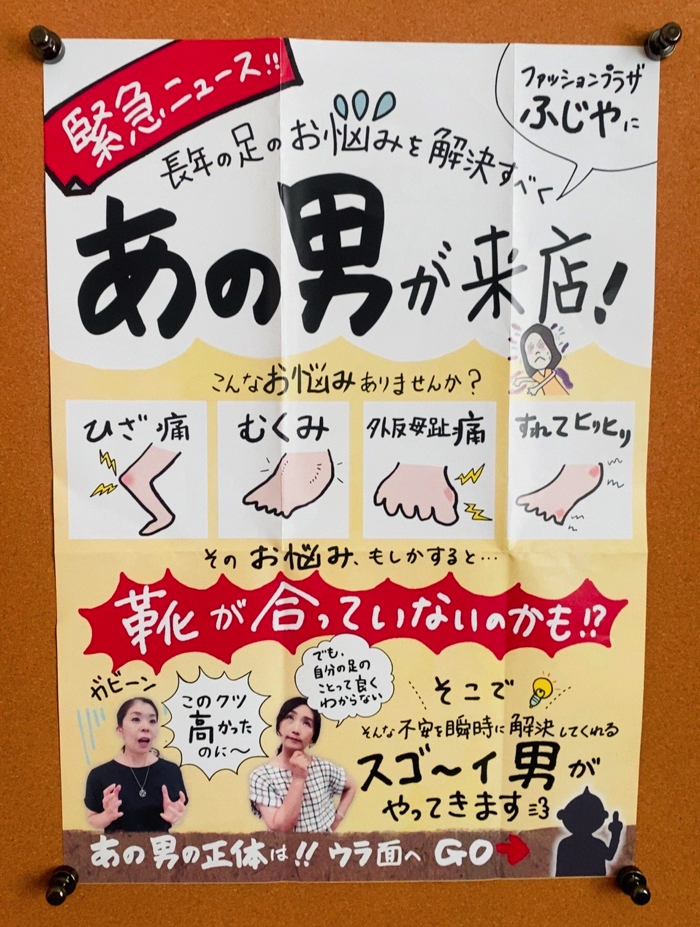 緊急ニュース!!
ファッションプラザ
ふじやに
長年の足のお悩みを解決すべく
あの男が来店!
こんなお悩みありませんか?
ひざ痛
むくみ
外反母趾痛
すれてヒリヒリ
そのお悩み、もしかすると…
靴が合っていないのかも!?
ガビーン
このクツ
高かった
のに〜
でも、
自分の足の
ことって良く
わからない
そこで
そんな不安を瞬時に解決してくれる
スゴ〜イ男が
やってきます
あの男の正体は!! ウラ面へ GO